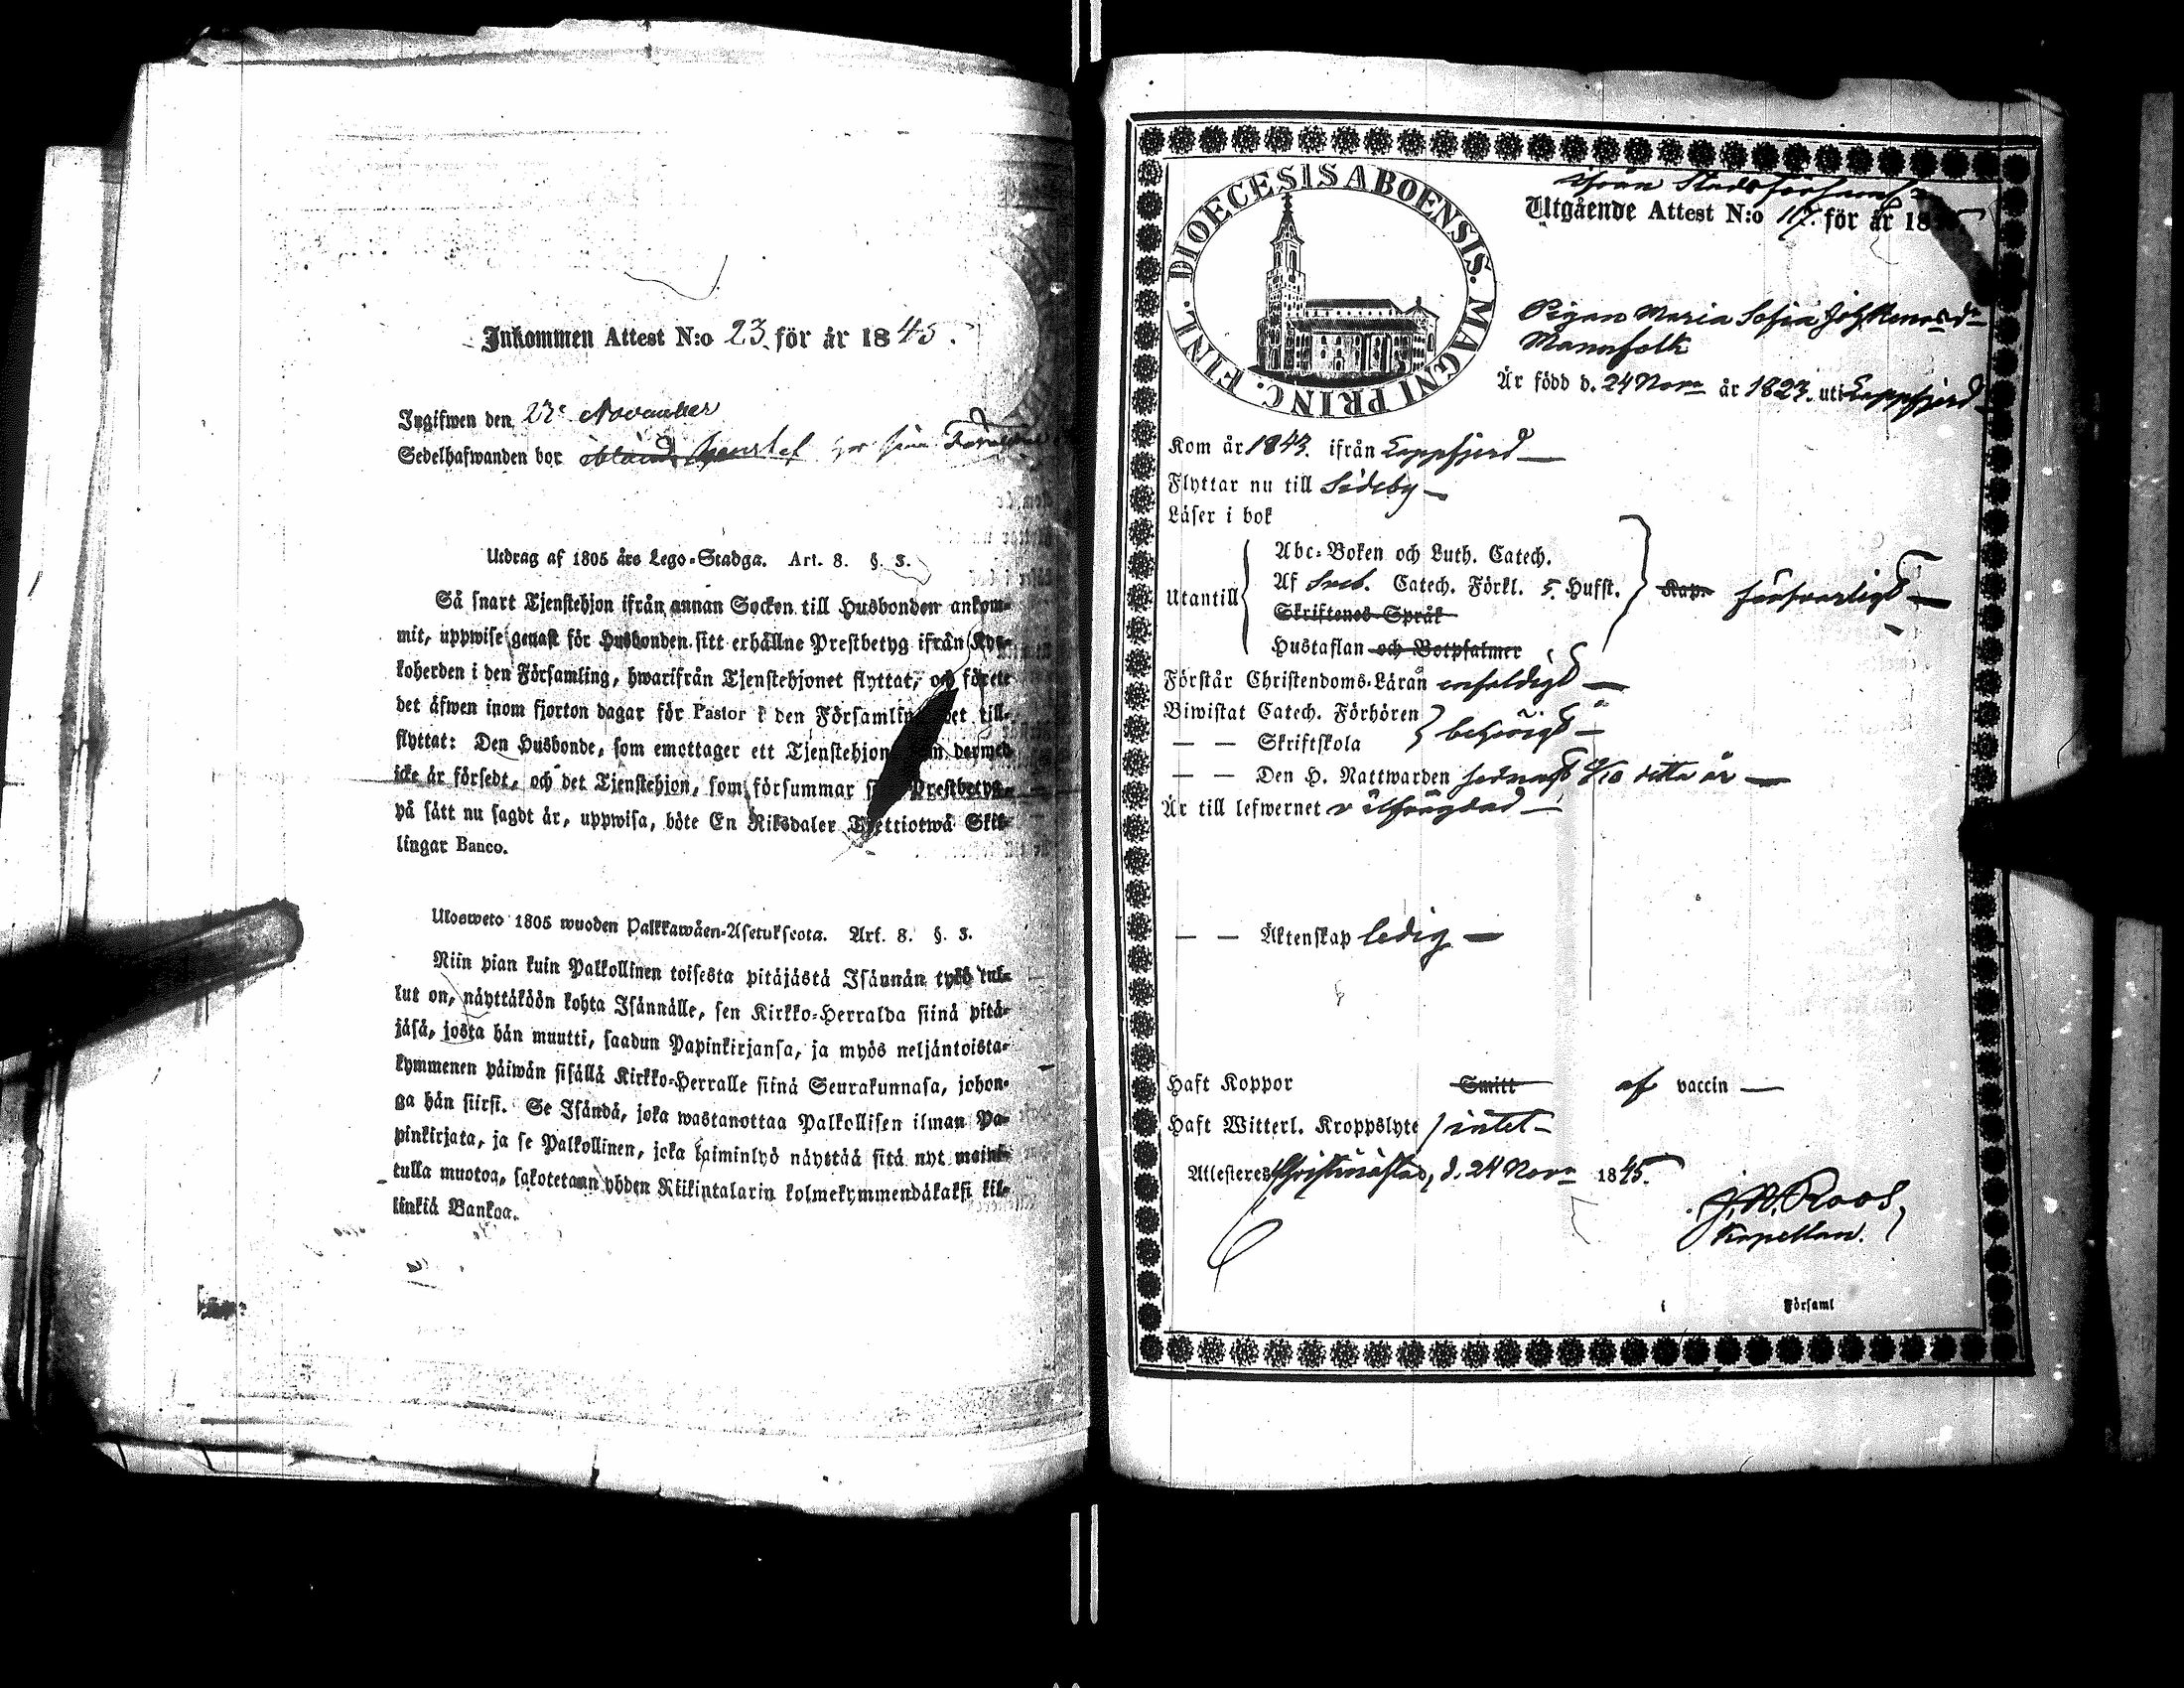 Inkommen Attest N:o 23. för år 1845.
Ingifwen den 27e November
Sedelhafwanden bor hos sina
Utdrag af 1805 års Lego-Stadga. Art. 8. §. 3.
Så snart Tjenstehjon ifrån annan Socken till Husbonden ankom-
mit, uppwise genast för Husbonden sitt erhållne Prestbetyg ifrån Kyr-
koherden i den Församling, hwarifrån Tjenstehjonet flyttat, och förete
det äfwen inom fjorton dagar för Pastor i den Församling det till-
flyttat: Den Husbonde, som emottager ett Tjenstehjon dermed
icke är försedt, och det Tjenstehjon, som försummar Prestbetyg,
på sätt nu sagdt är, uppwisa, böte En Riksdaler Trettiotwå Skil-
lingar Banco.
Ulosweto 1805 wuoden Palkkawäen-Asetuksesta. Art. 8. §. 3.
Niin pian kuin Palkollinen toisesta pitäjästä Isännän tykö tul-
lut on, näyttäköön kohta Isännälle, sen Kirkko-Herralda siinä pitä-
jäsä, josta hän muutti, saadun Papinkirjansa, ja myös neljäntoista-
kymmenen päiwän sisällä Kirkko-Herralle siinä Seurakunnasa, johon-
ga hän siirsi. Se Isändä, joka wastanottaa Palkollisen ilman Pa-
pinkirjata, ja se Palkollinen, joka laiminlyö näyttää sitä nyt maini-
tulla muotoa, sakotetaan yhden Riikintalarin kolmekymmendäkaksi kil-
linkiä Bankoa.
DIOECESIS ABOENSIS. MAGNI PRINC. FINL.
ifrån Stadsförsaml
Utgående Attest N:o 117. för år 1845.
Pigan Maria Sofia
Mannfolk
Är född d. 24 Nov. år 1823. uti Lappfjerd
Kom år 1843. ifrån Lappfjerd
Flyttar nu till Sideby
Läser i bok
Utantill
Abc-Boken och Luth. Catech.
Af Sveb. Catech. Förkl. 5. Hufst.
Skriftenes Språk
Hustaflan och Botpsalmer
Kap. försvarligt
Förstår Christendoms-Läran enfaldigt
Biwistat Catech. Förhören
— — Skriftskola
behörigt
— — Den H. Nattwarden sednast /10 detta år
Är till lefwernet oförvitlig
— — Äktenskap ledig
Haft Koppor Smitt af vaccin
Haft Witterl. Kroppslyte intet
Attesteres Christinæstad, d. 24 Nov. 1845.
J. N. Roos,
Kapellan.
i Församl